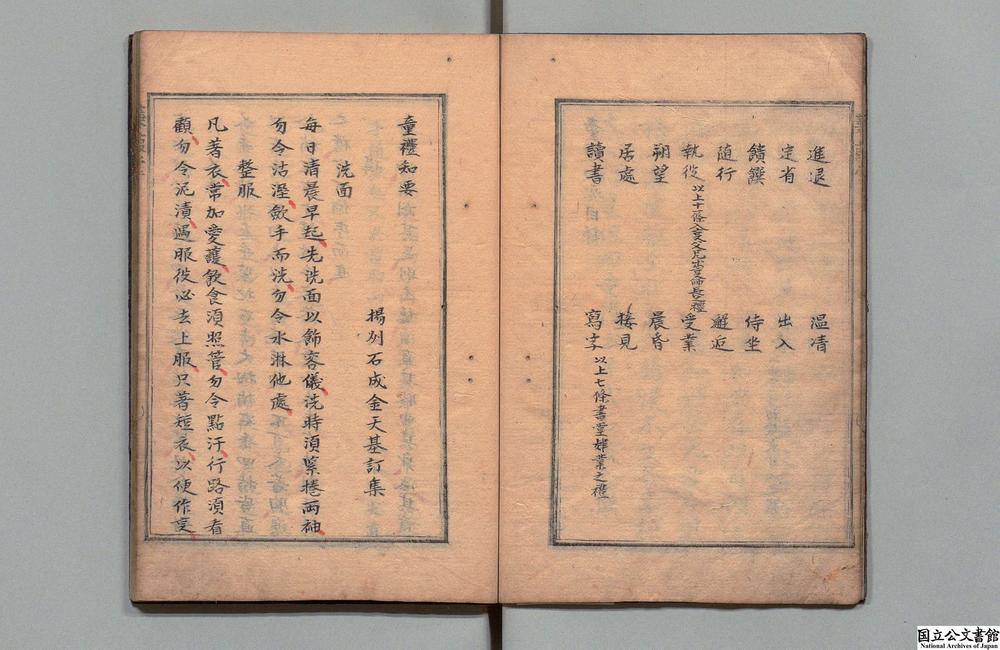 進退 温凊
定省 出入
饋饌 侍坐
随行 邂逅
執役 以上十條入爰父兄出爰師長之禮 受業
朔望 晨昏
居處 接見
讀書 寫字 以上七條書堂肄業之禮
童禮知要
揚州石成金天基訂集
洗面
每日清晨早起先洗面以飾容儀洗時須緊捲兩袖
勿令沾溼斂手而洗勿令水淋他處
整服
凡著衣常加愛護飲食須照管勿令點汙行路須看
顧勿令泥漬遇服役必去上服只著短衣以便作㕛
国立公文書館
National Archives of Japan